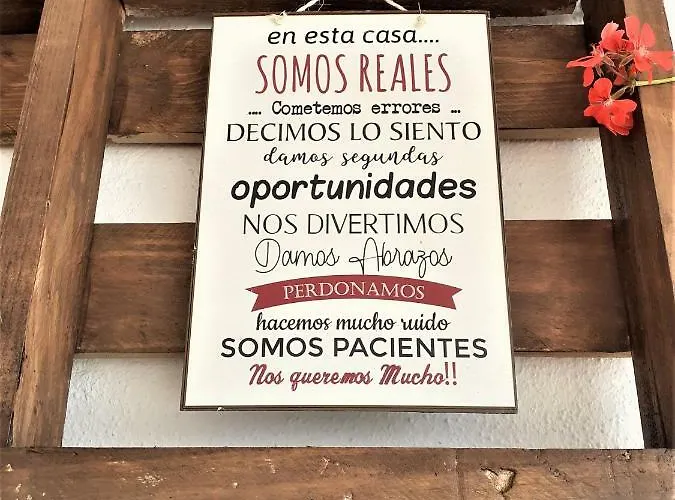 en esta casa....
SOMOS REALES
.... Cometemos errores ...
DECIMOS LO SIENTO
damos segundas
oportunidades
NOS DIVERTIMOS
Damos Abrazos
PERDONAMOS
hacemos mucho ruido
SOMOS PACIENTES
Nos queremos Mucho!!